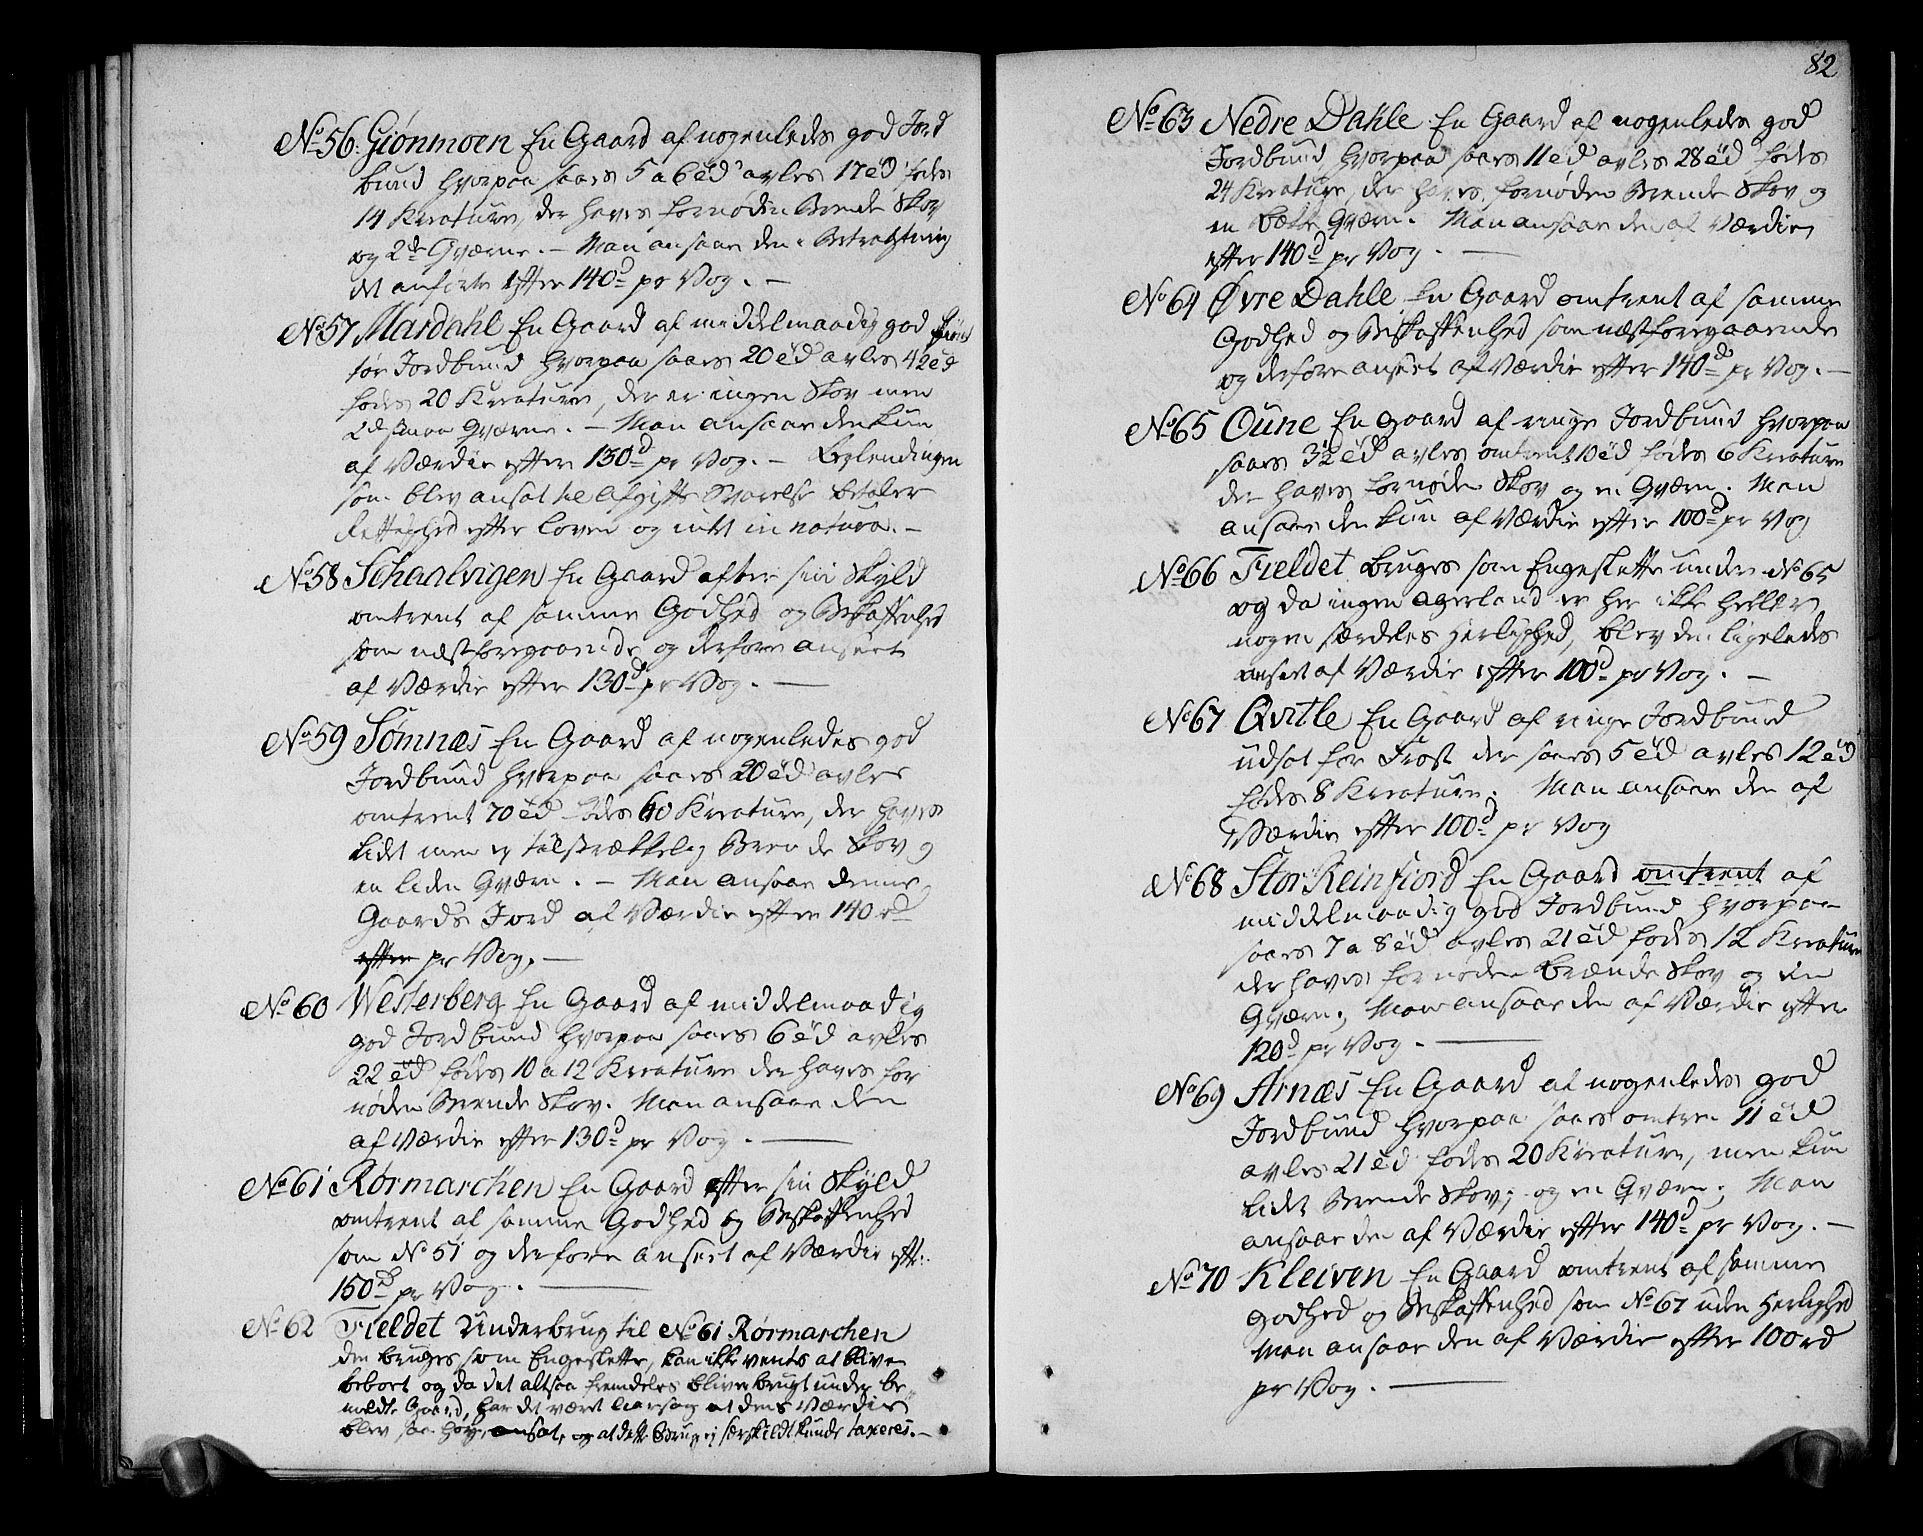 No 56. Giønmoen En Gaard af nogenledes god Jord
bund hvorpaa saaes 5 a 6 td avles 17 td, fødes
14 Kreature, der haves fornøden Brende Skov
og 2de Qværne. — Man ansaae den i Betragtning
det anførte efter 140 d pr Vog. —
No 57 Mardahl En Gaard af middelmaadig god
tør Jordbund hvorpaa saaes 20 td avles 42 td
fødes 20 Kreature, der er ingen Skov men
2de smaa Qværne. — Man ansaae den kun
af Værdie efter 130 d pr Vog. —
som blev ansat til Afgifts Svarelse betaler
Rettighed efter loven og intet in natura. —
No 58 Schaalvigen En Gaard efter sin Skyld
omtrent af samme Godhed og Beskaffenhed
som næstforegaaende og derfore anseet
af Værdie efter 130 d pr Vog. —
No 59 Sømnæs En Gaard af nogenledes god
Jordbund hvorpaa saaes 20 td avles
omtrent 70 td fødes 60 Kreature, der haves
lidet men ey tilstrækkelig Brende Skov og
en liden Qværn. — Man ansaae denne
Gaards Jord af Værdie efter 140 rd
efter pr Vog. —
No 60 Westerberg En Gaard af middelmaadig
god Jordbund hvorpaa saaes 6 td avles
22 td fødes 10 a 12 Kreature der haves for
nøden Brende Skov. Man ansaae den
af Værdie efter 130 d pr Vog. —
No 61 Rørmarchen En Gaard efter sin Skyld
omtrent af samme Godhed og Beskaffenhed
som No 51 og derfore anseet af Værdie eft:
150 d pr Vog. —
No 62 Fieldet Underbrug til No 61 Rørmarchen
den bruges som Engeslette, kan ikke ventes at blive
beboet og da det altsaa fremdeles bliver brugt under be
meldte Gaard, har det været Aarsag at dens Værdie
blev saa høy ansat, og at dette Brug ej særskildt kunde taxeres. —
82
No 63 Nedre Dahle En Gaard af nogenledes god
Jordbund hvorpaa saaes 11 td avles 28 td fødes
24 Kreature, der haves fornøden Brende Skov og
en Qværn. Man ansaae den af Værdie
efter 140 d pr Vog. —
No 64 Øvre Dahle En Gaard omtrent af samme
Godhed og Beskaffenhed som næstforegaaende
og derfore anseet af Værdie efter 140 d pr Vog. —
No 65 Oune En Gaard af ringe Jordbund hvorpaa
saaes 3½ td avles omtrent 10 td fødes 6 Kreature
der haves fornøden Skov og en Qværn. Man
ansaae den kun af Værdie efter 100 d pr Vog
No 66 Fieldet bruges som Engeslette under No 65
og da ingen agerland er her ikke heller
nogen særdeles Herlighed, blev den ligeledes
anseet af Værdie efter 100 d pr Vog. —
No 67 Qvitle En Gaard af ringe Jordbund
udsat for Frost der saaes 5 td avles 12 td
fødes 8 Kreature. Man ansaae den af
Værdie efter 100 d pr Vog
No 68 Stor Reinfiord En Gaard omtrent af
middelmaadig god Jordbund hvorpaa
saaes 7 a 8 td avles 21 td fødes 12 Kreature
der haves fornøden brænde Skov og en
Qværn; Man ansaae den af Værdie efter
120 d pr Vog. —
No 69 Arnæs En Gaard af nogenledes god
Jordbund hvorpaa saaes omtren 11 td
avles 21 td fødes 20 Kreature, men kun
lidt Brende Skov; og en Qværn; Man
ansaae den af Værdie efter 140 d pr Vog. —
No 70 Kleiven En Gaard omtrent af samme
godhed og Beskaffenhed som No 67 uden Herlighed
Man ansaae den af Værdie efter 100 rd
pr Vog. —